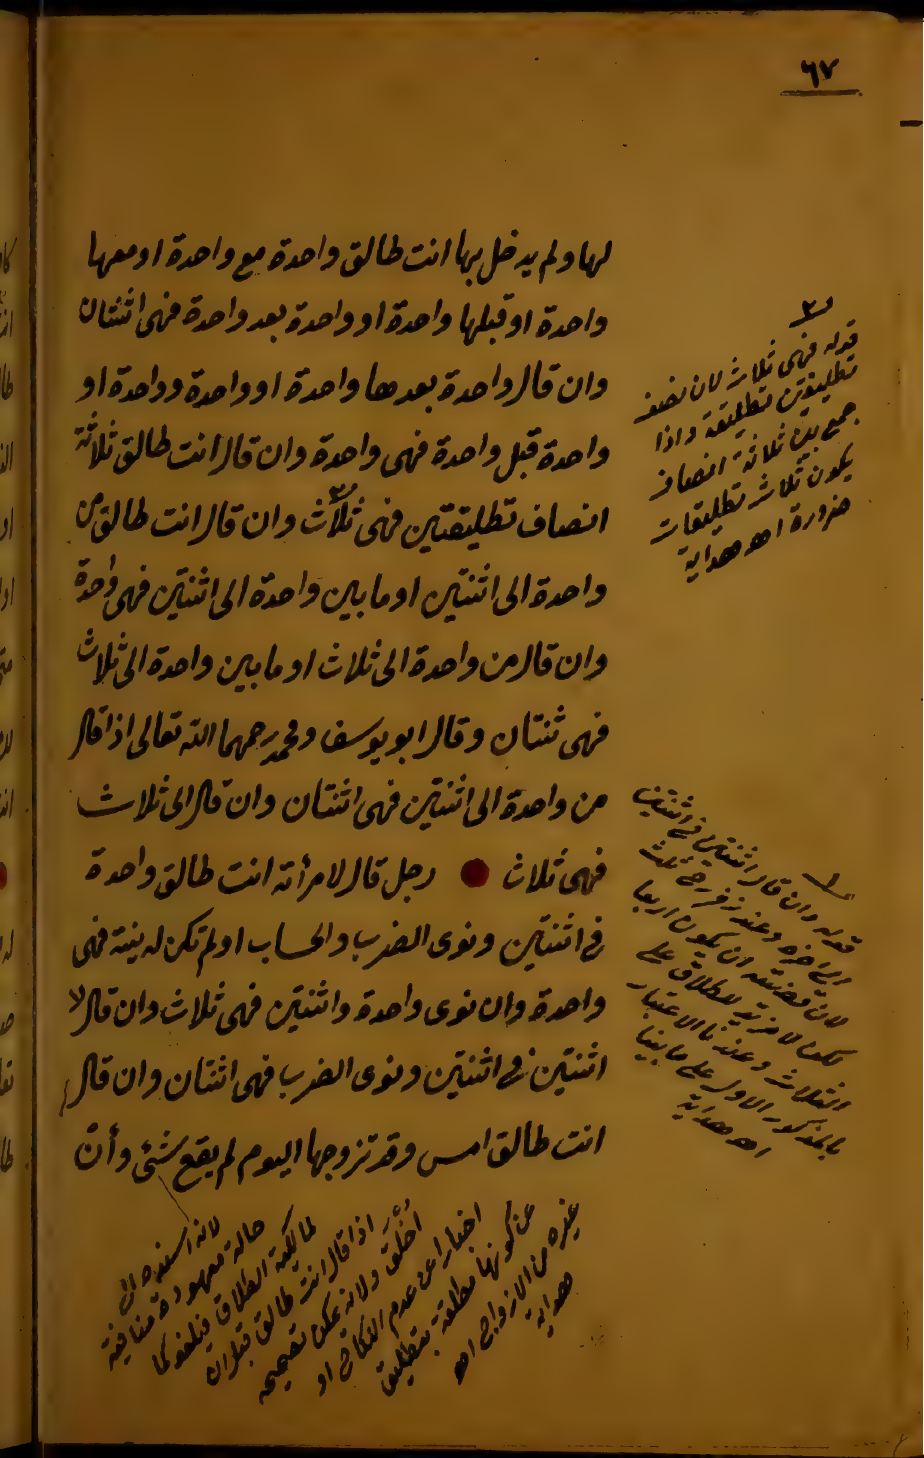 ٦٧
لها ولم يدخل بها انت طالق واحدة مع واحدة او معها
واحدة او قبلها واحدة او واحدة بعد واحدة فهى اثنتان
وان قال واحدة بعدها واحدة او واحدة وواحدة او
واحدة قبل واحدة فهى واحدة وان قال انت طالق ثلاثة
انصاف تطليقتين فهى ثلاث وان قال انت طالق من
واحدة الى اثنتين او ما بين واحدة الى اثنتين فهى واحدة
وان قال من واحدة الى ثلاث او ما بين واحدة الى ثلاث
فهى ثنتان وقال ابو يوسف ومحمد رحمهما الله تعالى اذا قال
من واحدة الى اثنتين فهى اثنتان وان قال الى ثلاث
فهى ثلاث رجل قال لامرأته انت طالق واحدة
فى اثنتين ونوى الضرب والحساب او لم تكن له نية فهى
واحدة وان نوى واحدة واثنتين فهى ثلاث وان قال
اثنتين فى اثنتين ونوى الضرب فهى اثنتان وان قال
انت طالق امس وقد تزوجها اليوم لم يقع شئ وأن
٣
قوله فهى ثلاث لان نصف
تطليقتين تطليقة واذا
جمع بين ثلاثة انصاف
يكون ثلاث تطليقات
ضرورة اهـ هداية
١
قوله وان قال اثنتين فى اثنتين
الى اخره وعند زفر رح ثلث
لان قضيته ان يكون اربعا
لكن لا مزيد للطلاق على
الثلاث وعندنا الاعتبار
بالمذكور الاول على ما بينا
اهـ هداية
لانه اسنده الى
حالة معهودة منافية
لمالكية الطلاق فيلغو كما
اذا قال انت طالق قبل ان
أخلق ولانه يمكن تصحيحه
اخبارا عن عدم النكاح او
عن كونها مطلقة بتطليق
غيره من الازواج اهـ
هداية